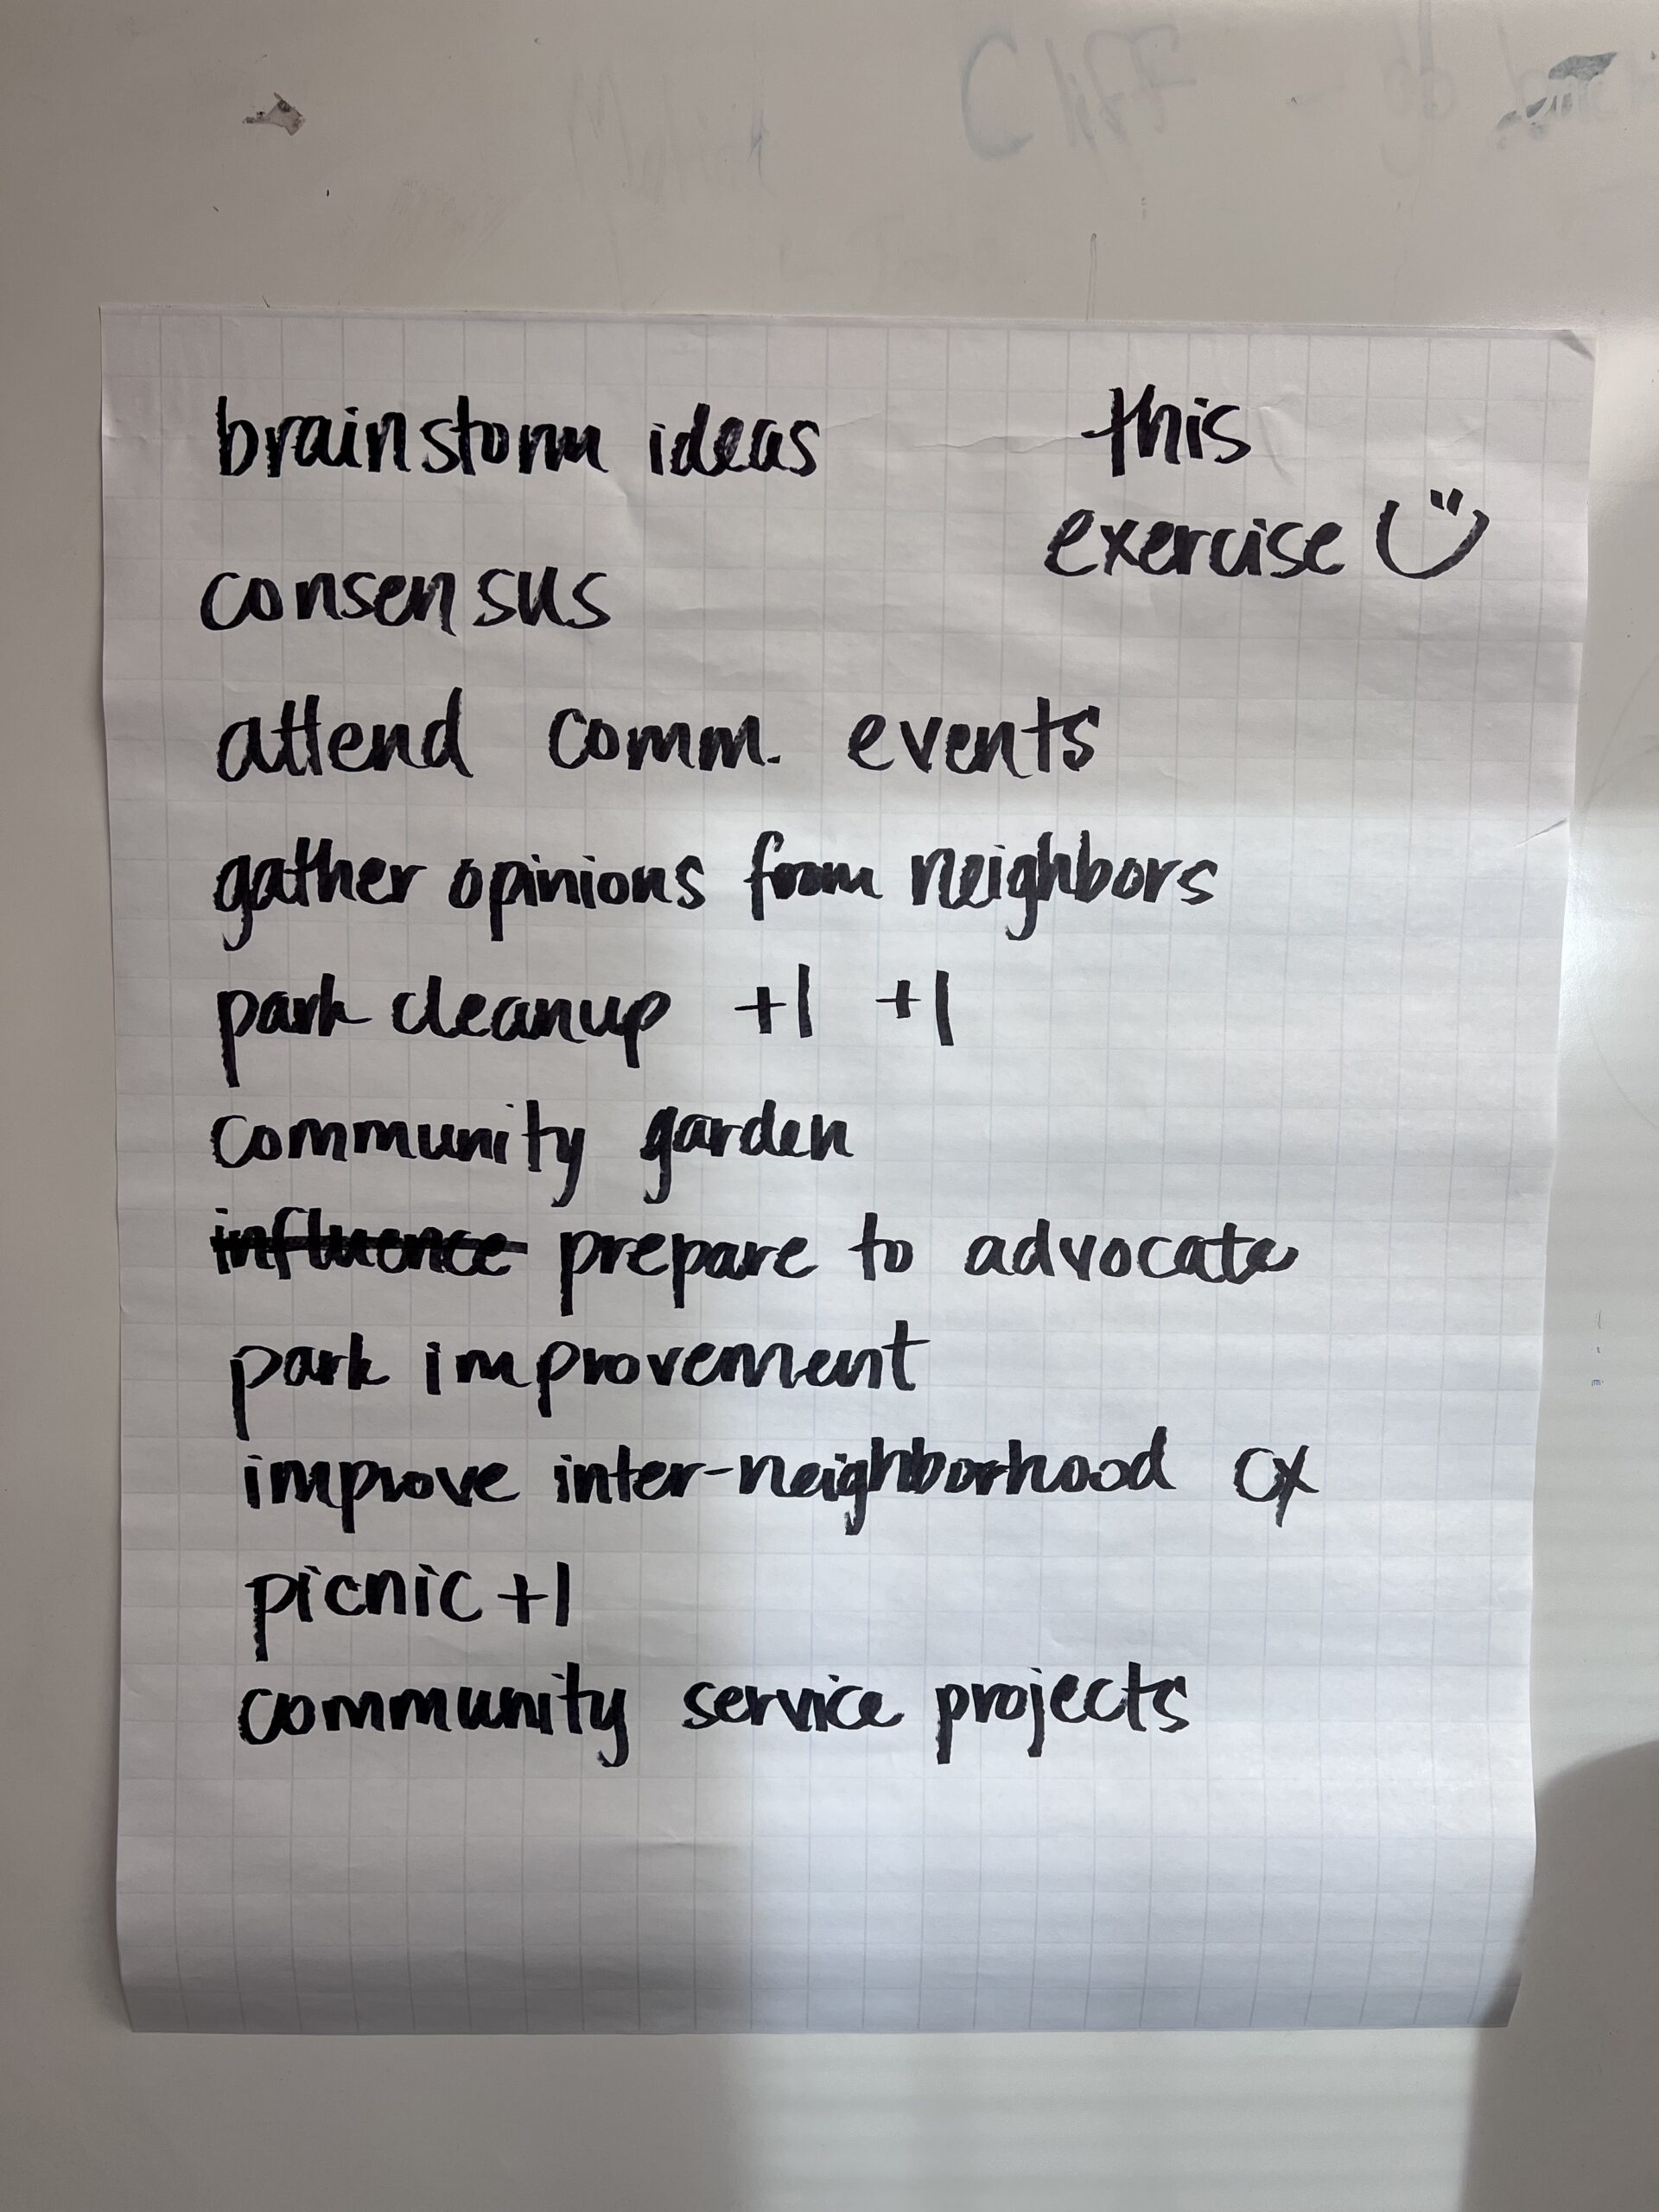 brainstorm ideas
this
exercise
consensus
attend comm. events
gather opinions from neighbors
park cleanup +1 +1
community garden
influence prepare to advocate
park improvement
improve inter-neighborhood cx
picnic +1
community service projects